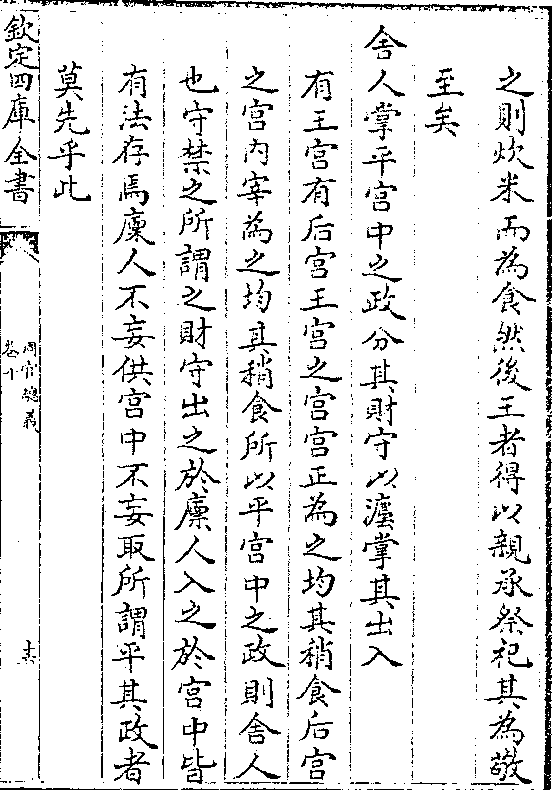 之則炊米而為食然後王者得以親承祭祀其為敬
至矣
舍人掌平宫中之政分其財守以灋掌其出入
有王宫有后宫王宫之宫宫正為之均其稍食后宫
之宫内宰為之均其稍食所以平宫中之政則舍人
也守禁之所謂之財守出之於廩人入之於宫中皆
有法存焉廩人不妄供宫中不妄取所謂平其政者
莫先乎此
欽定四庫全書
周官總義
卷十
十六